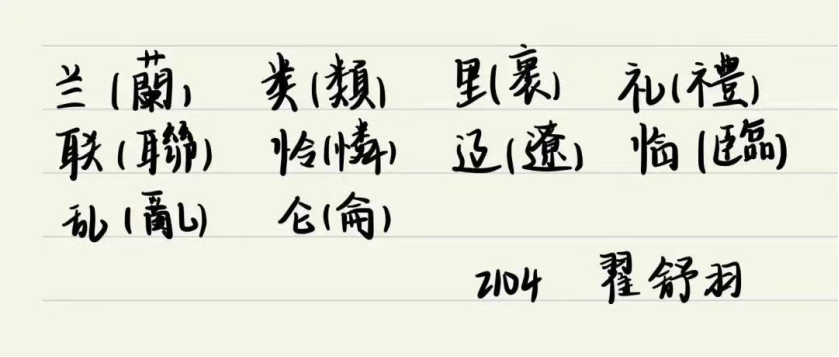 兰(蘭) 类(類) 里(裏) 礼(禮)
联(聯) 怜(憐) 辽(遼) 临(臨)
乱(亂) 仑(侖)
2104 翟舒羽